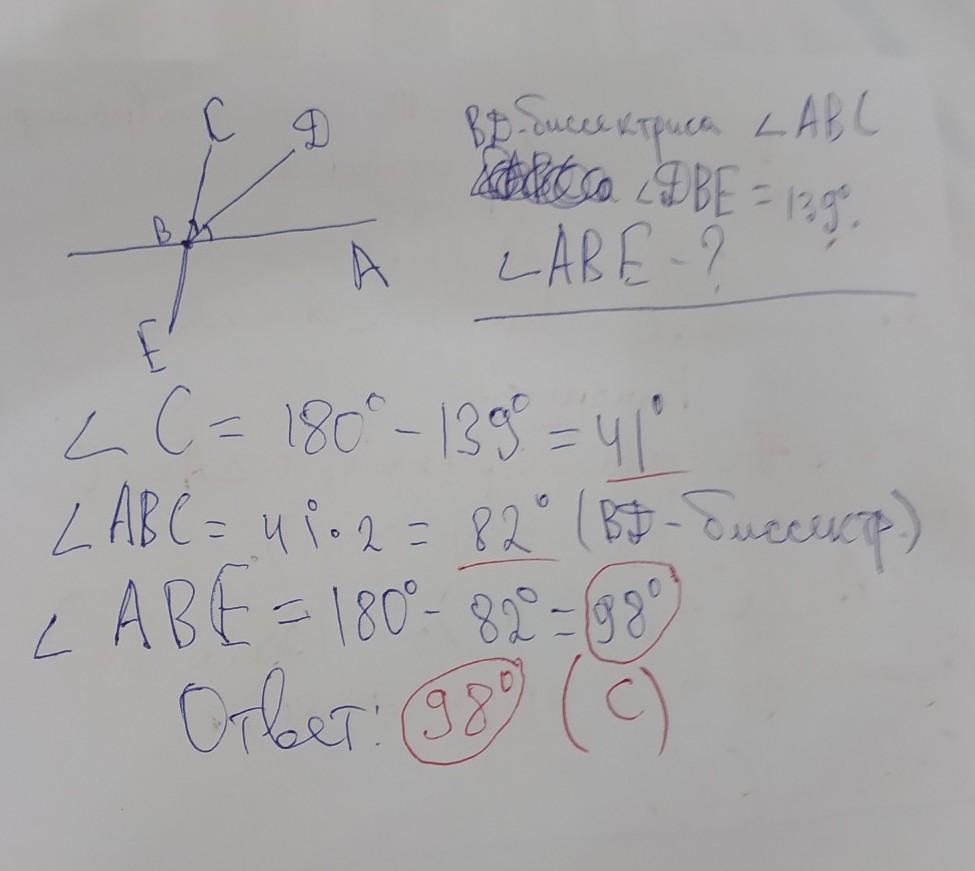 C
D
B
A
E
BD-биссектриса ∠ABC
∠DBE = 139°.
∠ABE - ?
∠C = 180° - 139° = 41°
∠ABC = 41°·2 = 82° (BD-биссектр.)
∠ABE = 180° - 82° = 98°
Ответ: 98° (C)